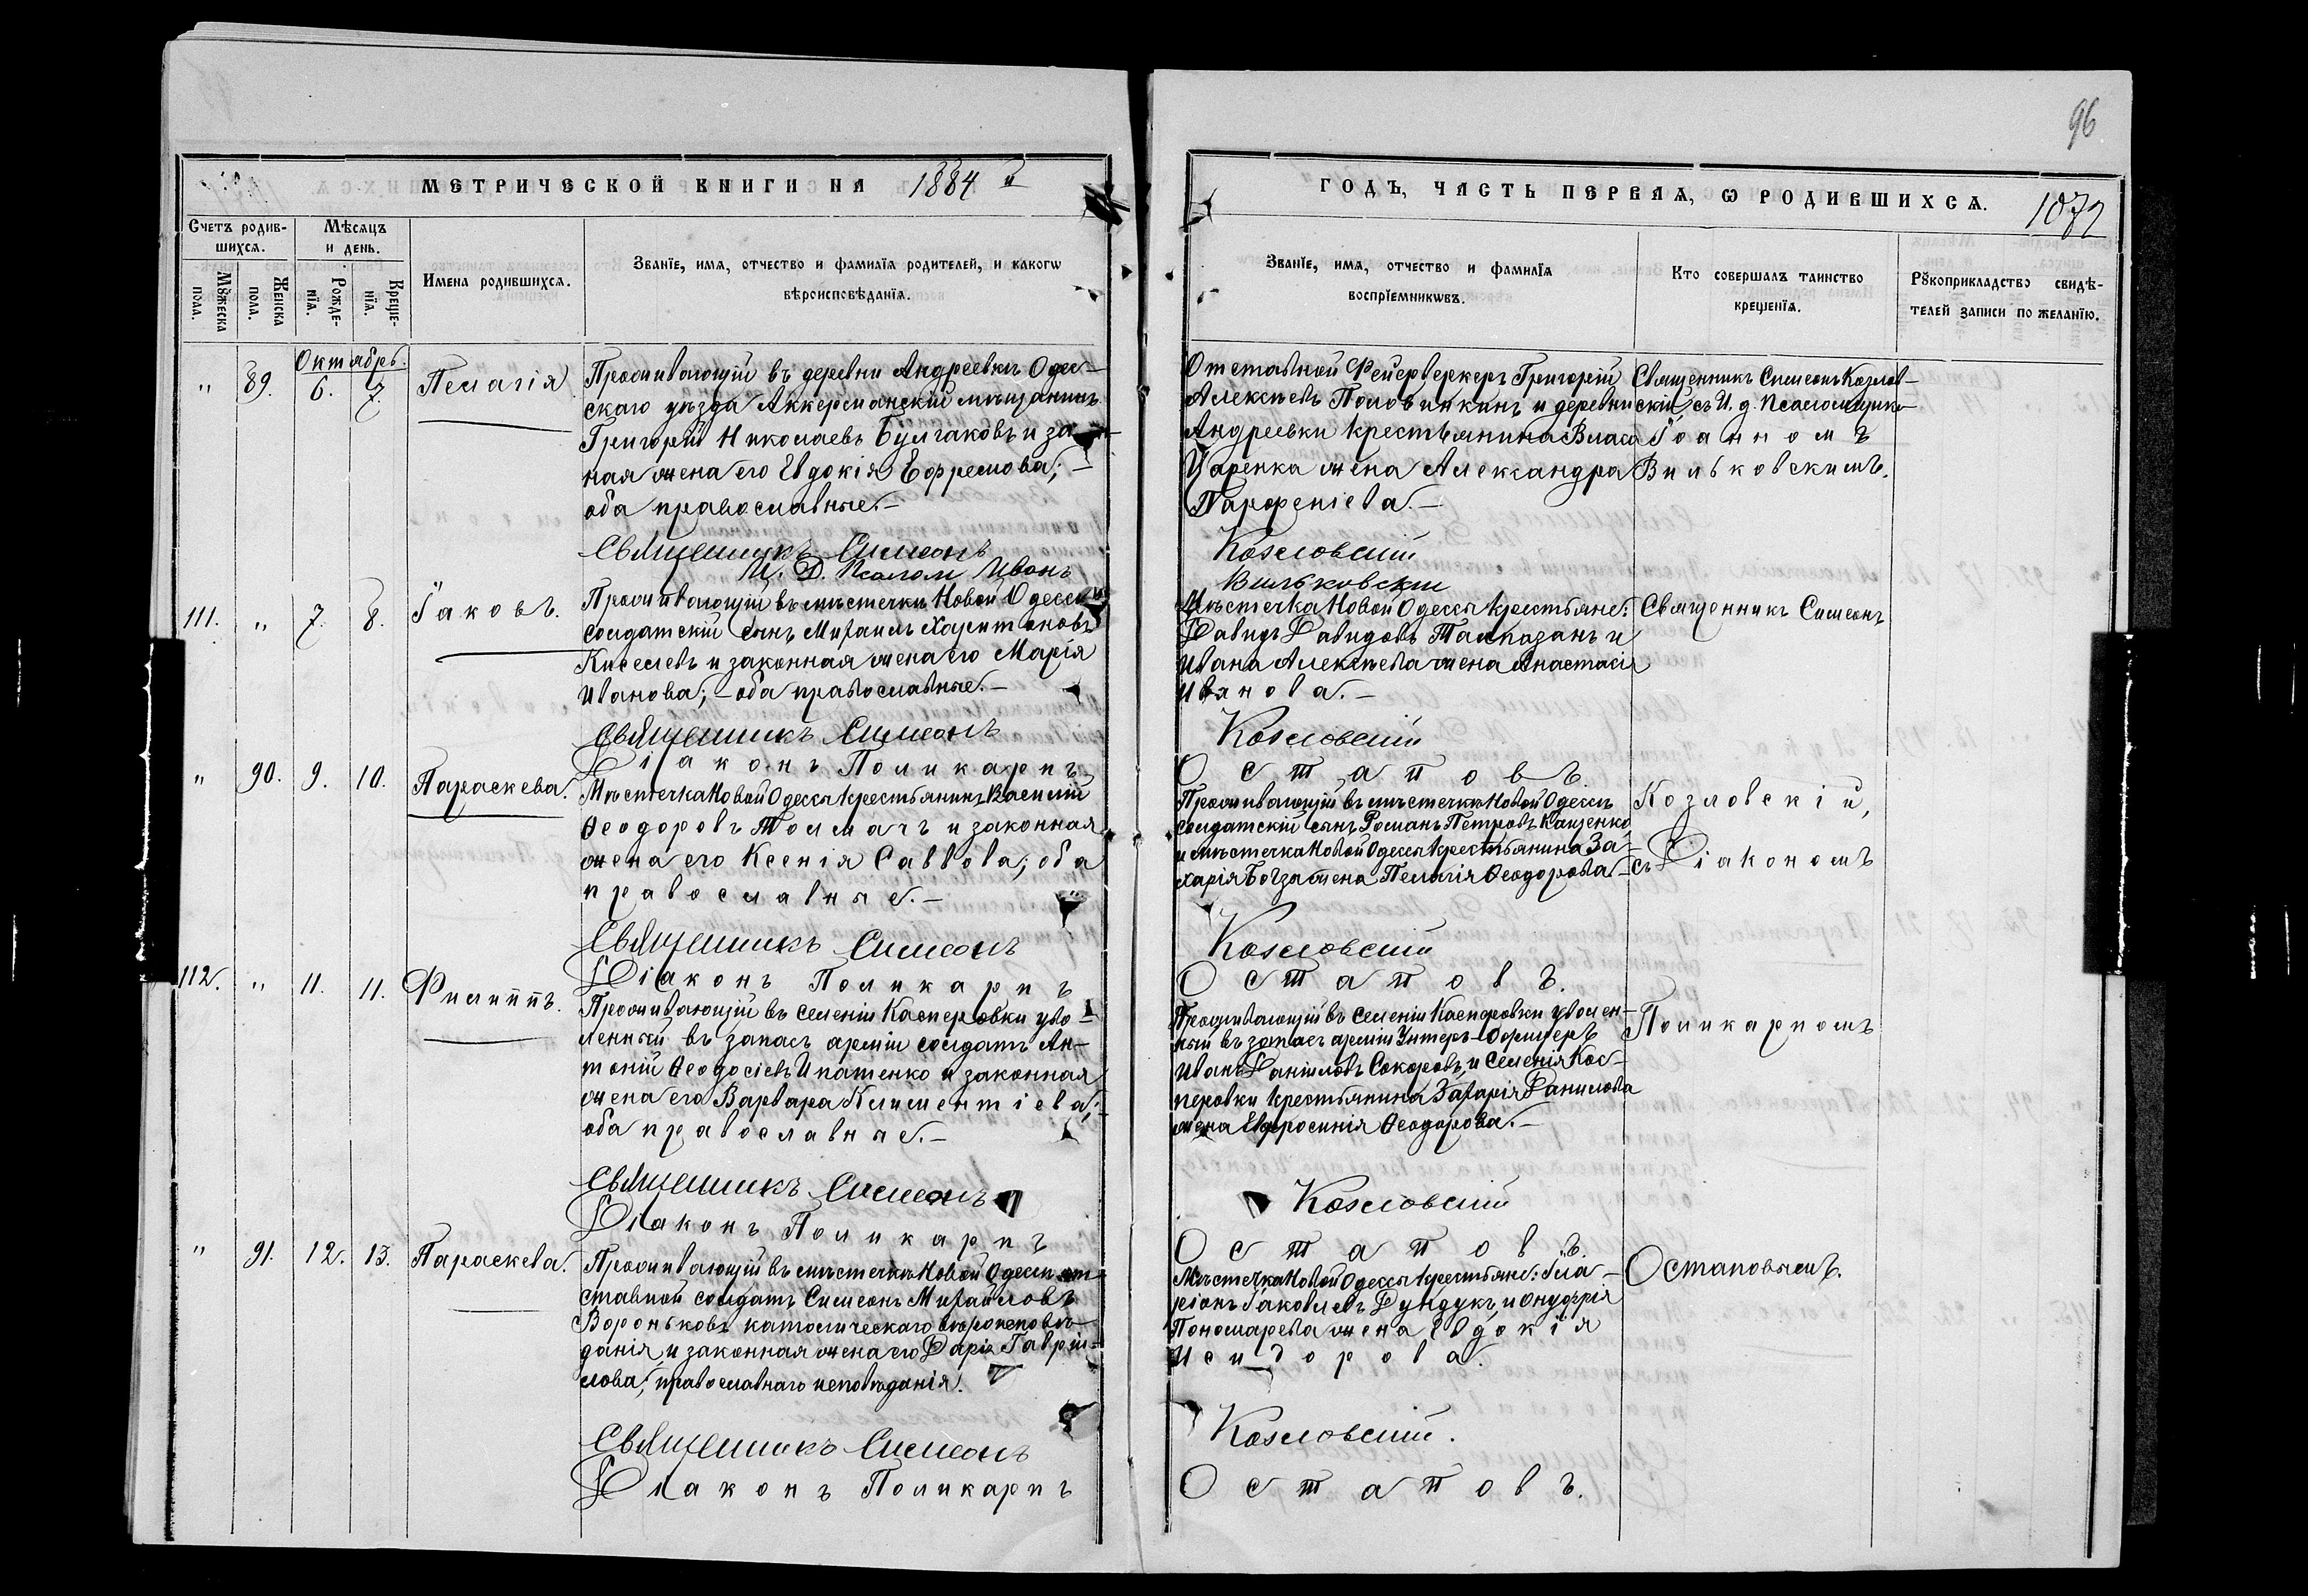 96
МЕТРИЧЕСКОЙ КНИГИ НА 1884 й
ГОДЪ, ЧАСТЬ ПЕРВАЯ, Ѡ РОДИВШИХСѦ.
1072
Счетъ родив-
шихсѧ.
Мѣсѧцъ
и день.
Мꙋжеска
пола.
Женска
пола.
Рожде-
нїѧ.
Креще-
нїѧ.
Имена родившихсѧ.
Званїе, имѧ, отчество и фамилїѧ родителей, и какогѡ
вѣроисповѣданїѧ.
Званїе, имѧ, отчество и фамилїѧ
воспрїемникѡвъ.
Кто совершалъ таинство
крещенїѧ.
Рꙋкоприкладство свидѣ-
телей записи по желанїю.
Октябрь.
" 89. 6. 7. Пелагія
Проживающій въ деревни Андреевкѣ Одес-
скаго уѣзда Аккерманскій мѣщанинъ
Григорій Николаевъ Булгаковъ и зако-
ная жена его Евдокія Ефремова; –
оба православные. –
Священникъ Симеонъ
И. Д. Псалом Иванъ
Отставной Фейерверкеръ Григорій
Алексѣевъ Половинкинъ и деревни
Андреевки крестьянина Власа
Царенка жена Александра
Парфеніева. –
Козловскій
Вильковскій
Священникъ Симеонъ Козлов-
скій съ И. д. Псаломщика
Іоанномъ
Вильковскимъ.
111. " 7. 8. Іаковъ.
Проживающій въ мѣстечкѣ Новой Одессѣ
солдатскій сынъ Михаилъ Харитоновъ
Киселевъ и законная жена его Марія
Иванова; – оба православные. –
Священникъ Симеонъ
Діаконъ Поликарпъ
Мѣстечка Новой Одессы крестьяне:
Давидъ Давидовъ Талпазанъ и
Ивана Алексѣева жена Анастасія
Иванова. –
Козловскій
Остаповъ.
Священникъ Симеонъ
" 90. 9. 10. Параскева.
Мѣстечка Новой Одессы крестьянинъ Василій
Ѳеодоровъ Толмачъ и законная
жена его Ксенія Саввова; оба
православные. –
Священникъ Симеонъ
Діаконъ Поликарпъ
Проживающій въ мѣстечкѣ Новой Одессѣ
солдатскій сынъ Романъ Петровъ Кащенко
и мѣстечка Новой Одессы крестьянина За-
харія Богза жена Пелагія Ѳеодорова –
Козловскій
Остаповъ.
Козловскій,
съ Діакономъ
112. " 11. 11. Филиппъ.
Проживающій въ селеніи Касперовки уво-
ленный въ запасъ арміи солдатъ Ан-
тоній Ѳеодосіевъ Ипатенко и законная
жена его Варвара Климентіева;
оба православные. –
Священникъ Симеонъ
Діаконъ Поликарпъ
Проживающій въ селеніи Касперовки уволен-
ный въ запасъ арміи Унтеръ-Офицеръ
Иванъ Даніиловъ Сокоровъ, и селенія Кас-
перовки крестьянина Захарія Данилова
жена Евфросинія Ѳеодорова. –
Козловскій
Остаповъ.
Поликарпомъ
" 91. 12. 13. Параскева.
Проживающій въ мѣстечкѣ Новой Одессѣ от-
ставной солдатъ Симеонъ Михайловъ
Вороньковъ католическаго вѣроисповѣ-
данія, и законная жена его Дарія Гавріи-
лова, православнаго исповѣданія.
Священникъ Симеонъ
Діаконъ Поликарпъ
Мѣстечка Новой Одессы крестьяне: Ила-
ріонъ Іаковлевъ Дундукъ, и Онуфрія
Пономарева жена Евдокія
Исидорова.
Козловскій.
Остаповъ.
Остаповымъ.